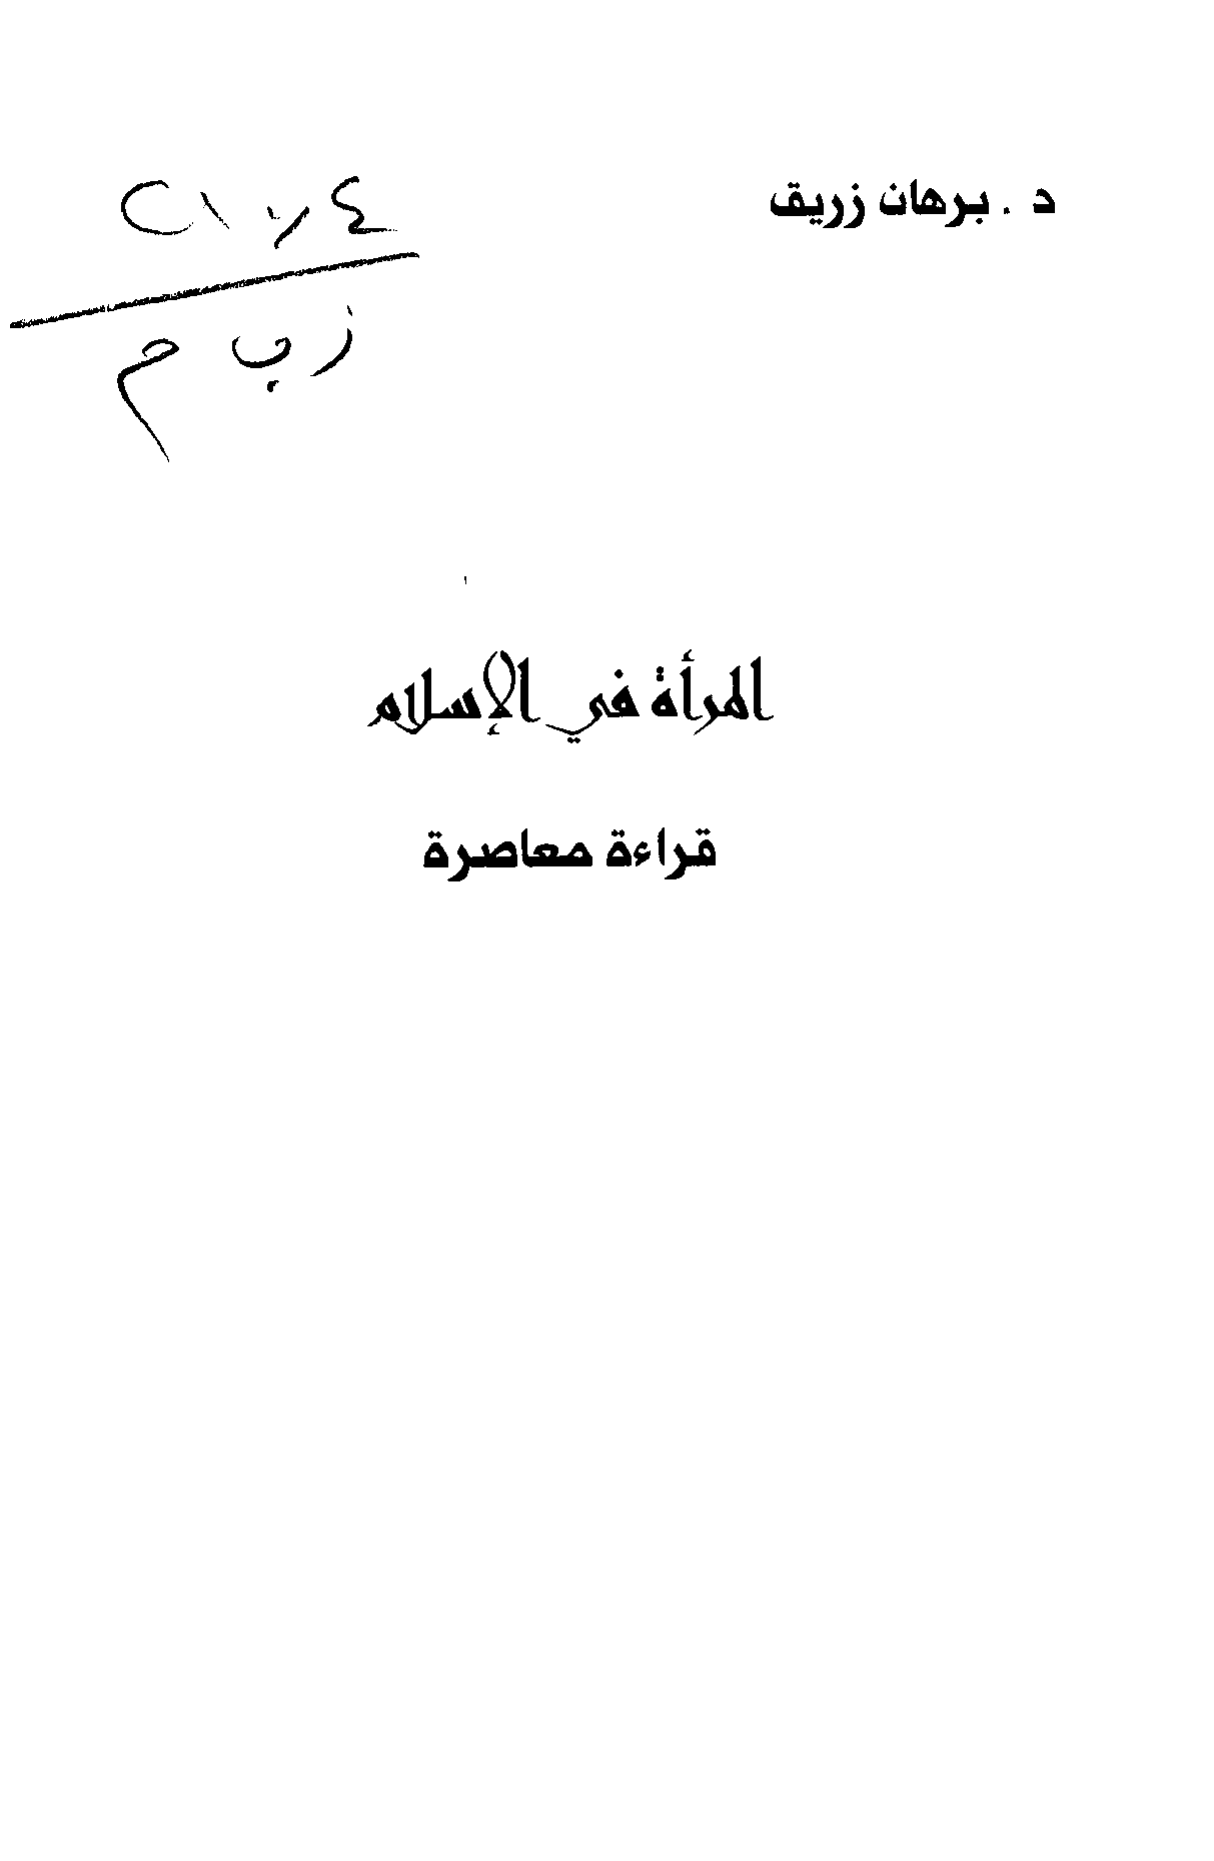 د . برهان زريق
المرأة في الإسلام
قراءة معاصرة